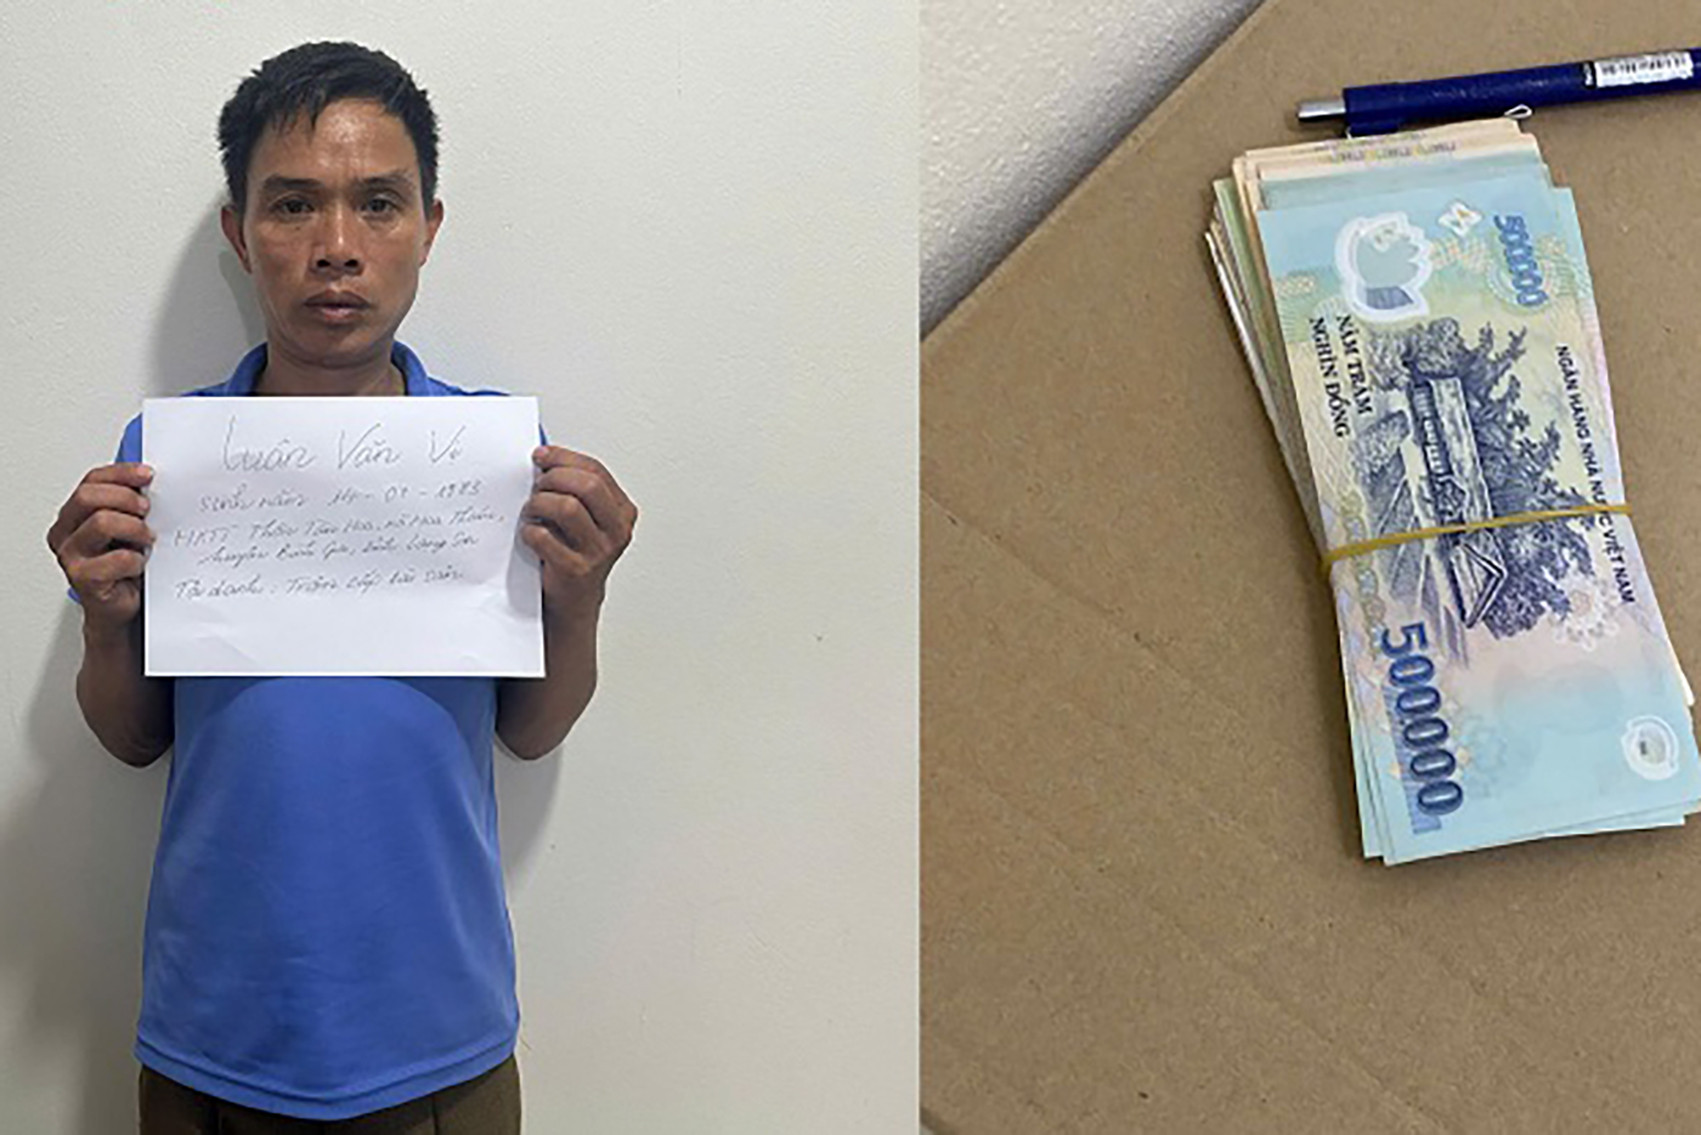 Luân Văn Vi
Sinh năm 14-07-1983
HKTT Thôn Tân Hoa, xã Hoa Thám,
huyện Bình Gia, tỉnh Lạng Sơn
Tội danh: Trộm cắp tài sản
500000
NĂM TRĂM
NGHÌN ĐỒNG
NGÂN HÀNG NHÀ NƯỚC VIỆT NAM
500000